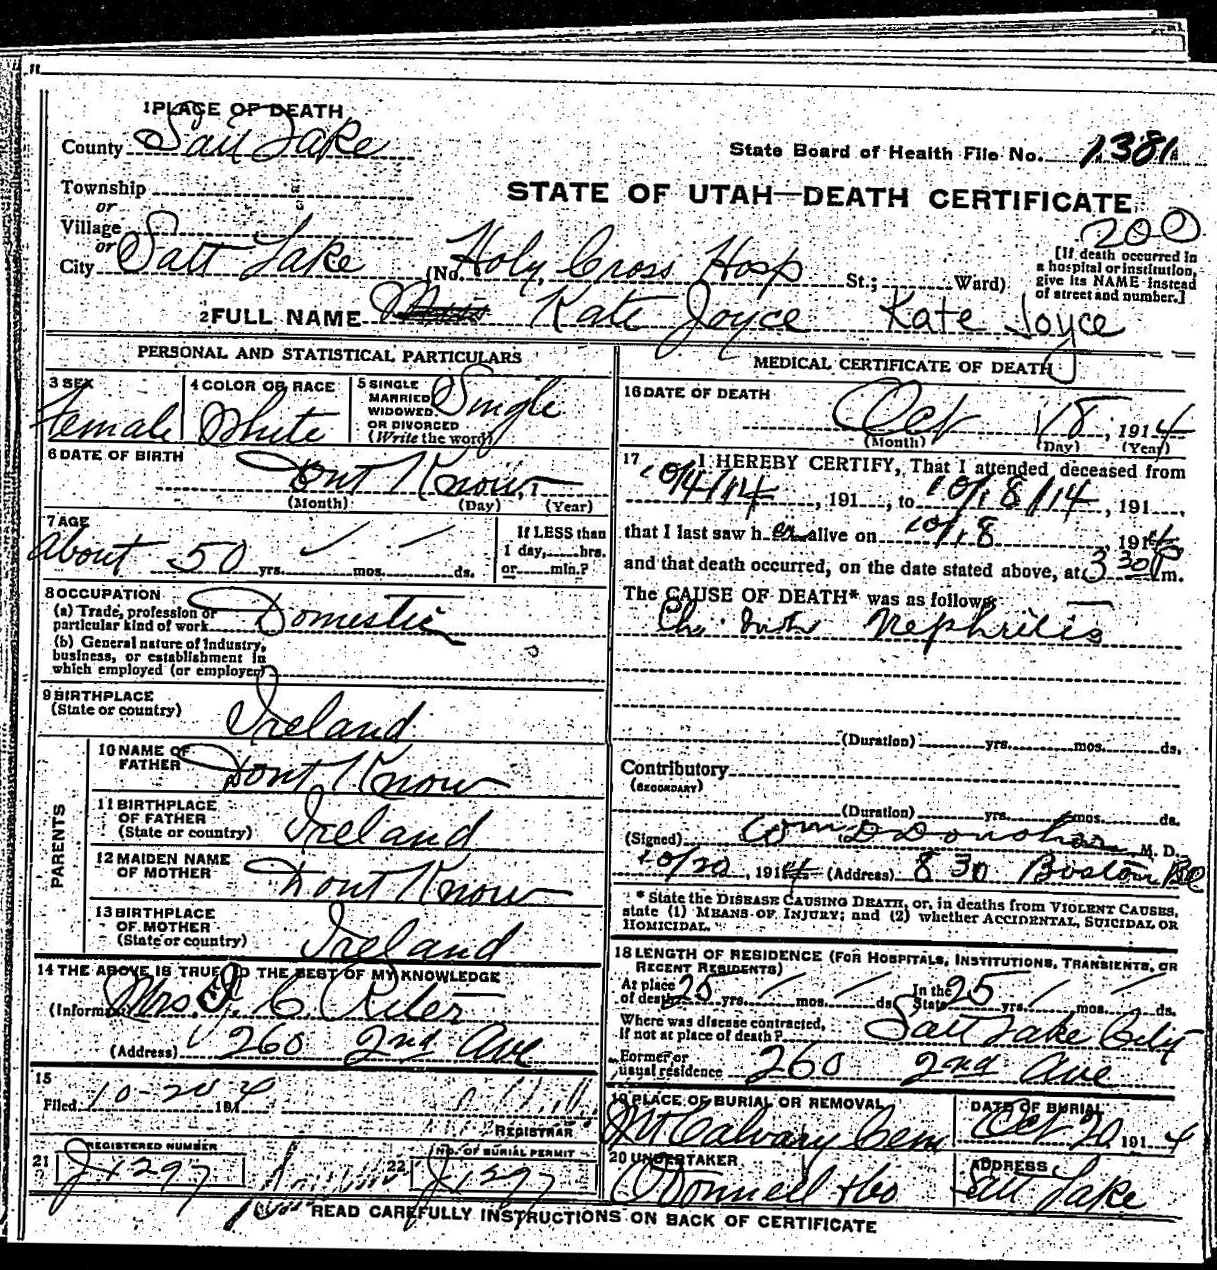 1 PLACE OF DEATH
County Salt Lake
State Board of Health File No. 1381
Township
or
Village
or
City Salt Lake
STATE OF UTAH—DEATH CERTIFICATE
200
(No. Holy Cross Hosp St.; Ward)
[If death occurred in a hospital or institution, give its NAME instead of street and number.]
2 FULL NAME Kate Joyce Kate Joyce
PERSONAL AND STATISTICAL PARTICULARS
3 SEX
Female
4 COLOR OR RACE
White
5 SINGLE
MARRIED
WIDOWED
OR DIVORCED
(Write the word)
Single
6 DATE OF BIRTH
Dont Know
(Month) (Day) (Year)
7 AGE
about 50 yrs. mos. ds.
If LESS than
1 day, hrs.
or min.?
8 OCCUPATION
(a) Trade, profession or
particular kind of work
Domestic
(b) General nature of industry,
business, or establishment in
which employed (or employer)
9 BIRTHPLACE
(State or country)
Ireland
PARENTS
10 NAME OF
FATHER
Dont Know
11 BIRTHPLACE
OF FATHER
(State or country)
Ireland
12 MAIDEN NAME
OF MOTHER
Dont Know
13 BIRTHPLACE
OF MOTHER
(State or country)
Ireland
14 THE ABOVE IS TRUE TO THE BEST OF MY KNOWLEDGE
Mrs. C.
(Address) 260 2nd Ave
15
Filed 10-20 1914
REGISTRAR
REGISTERED NUMBER
21 J1297
NO. OF BURIAL PERMIT
22 J1297
MEDICAL CERTIFICATE OF DEATH
16 DATE OF DEATH
Oct 18, 1914
(Month) (Day) (Year)
17 I HEREBY CERTIFY, That I attended deceased from
10/4/14, 191 , to 10/18/14, 191 ,
that I last saw her alive on 10/18, 1914
and that death occurred, on the date stated above, at 3 30 P m.
The CAUSE OF DEATH* was as follows:
Ch. Nephritis
(Duration) yrs. mos. ds.
Contributory
(SECONDARY)
(Duration) yrs. mos. ds.
(Signed) M. D.
10/20, 1914 (Address) 830 Boston
* State the DISEASE CAUSING DEATH, or, in deaths from VIOLENT CAUSES,
state (1) MEANS OF INJURY; and (2) whether ACCIDENTAL, SUICIDAL OR
HOMICIDAL.
18 LENGTH OF RESIDENCE (FOR HOSPITALS, INSTITUTIONS, TRANSIENTS, OR
RECENT RESIDENTS)
At place
of death 25 yrs. mos. ds.
In the
State 25 yrs. mos. ds.
Where was disease contracted,
if not at place of death? Salt Lake City
Former or
usual residence 260 2nd Ave
19 PLACE OF BURIAL OR REMOVAL
Mt Calvary Cem
DATE OF BURIAL
Oct 20, 1914
20 UNDERTAKER
O'Donnell & Co
ADDRESS
Salt Lake
READ CAREFULLY INSTRUCTIONS ON BACK OF CERTIFICATE